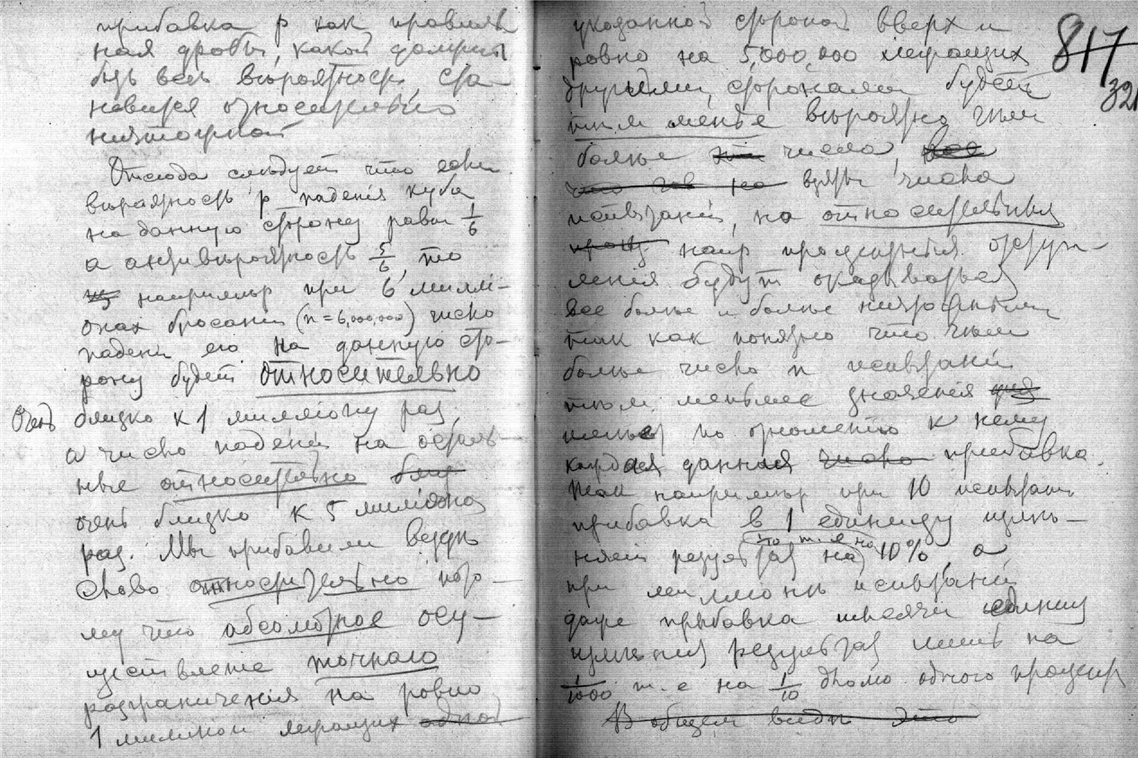 прибавка p как правиль
ная дробь, какой должны
быть вероятность, ста-
новится относительно
ничтожной
Отсюда следует что если
вероятность p падения куба
на данную сторону равна 1/6
а антивероятность 5/6, то
например при 6 милли-
онах бросаний (n = 6,000,000) число
падений его на данную сто-
рону будет относительно
очень близко к 1 миллiону раз
а число паденiй на осталь-
ные относительно
очень близко к 5 миллiонов
раз. Мы прибавили везде
слово относительно пото-
му что абсолютное осу-
ществленiе точнаго
разграниченiя на ровно
1 миллiон лежащих одной
указанной стороной вверх и
ровно на 5,000,000 лежащих
другими сторонами будет
тем менее вероятно чем
больше числа, все
взять числа
испытанiй, но относительныя
напр процентныя отступ-
ленiя будут оказываться
все более и более ничтожными
так как понятно что чем
больше число n испытанiй
тем меньшее значенiя
имеет по отношенiю к нему
каждая данная число прибавка.
Так например при 10 испытан.
прибавка в 1 единицу изме-
няет результат на 10% а
при миллiоне испытанiй
даже прибавка тысячи единиц
изменит результат лишь на
1/1000 т.е на 1/10 долю одного процента
В общем виде это
817
32